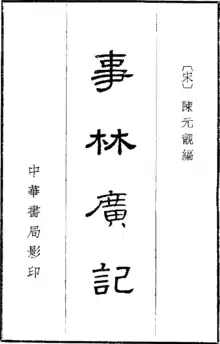 〔宋〕陳元靚編
事林廣記
中華書局影印